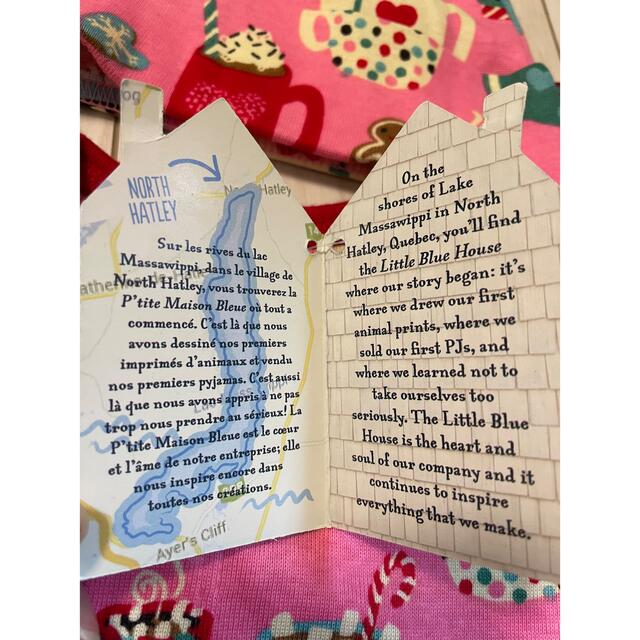 NORTH
HATLEY
North Hatley
Sur les rives du lac
Massawippi, dans le village de
North Hatley, vous trouverez la
P'tite Maison Bleue où tout a
commencé. C'est là que nous
avons dessiné nos premiers
imprimés d'animaux et vendu
nos premiers pyjamas. C'est aussi
là que nous avons appris à ne pas
trop nous prendre au sérieux! La
P'tite Maison Bleue est le cœur
et l'âme de notre entreprise; elle
nous inspire encore dans
toutes nos créations.
Ayer's Cliff
On the
shores of Lake
Massawippi in North
Hatley, Quebec, you'll find
the Little Blue House
where our story began: it's
where we drew our first
animal prints, where we
sold our first PJs, and
where we learned not to
take ourselves too
seriously. The Little Blue
House is the heart and
soul of our company and it
continues to inspire
everything that we make.